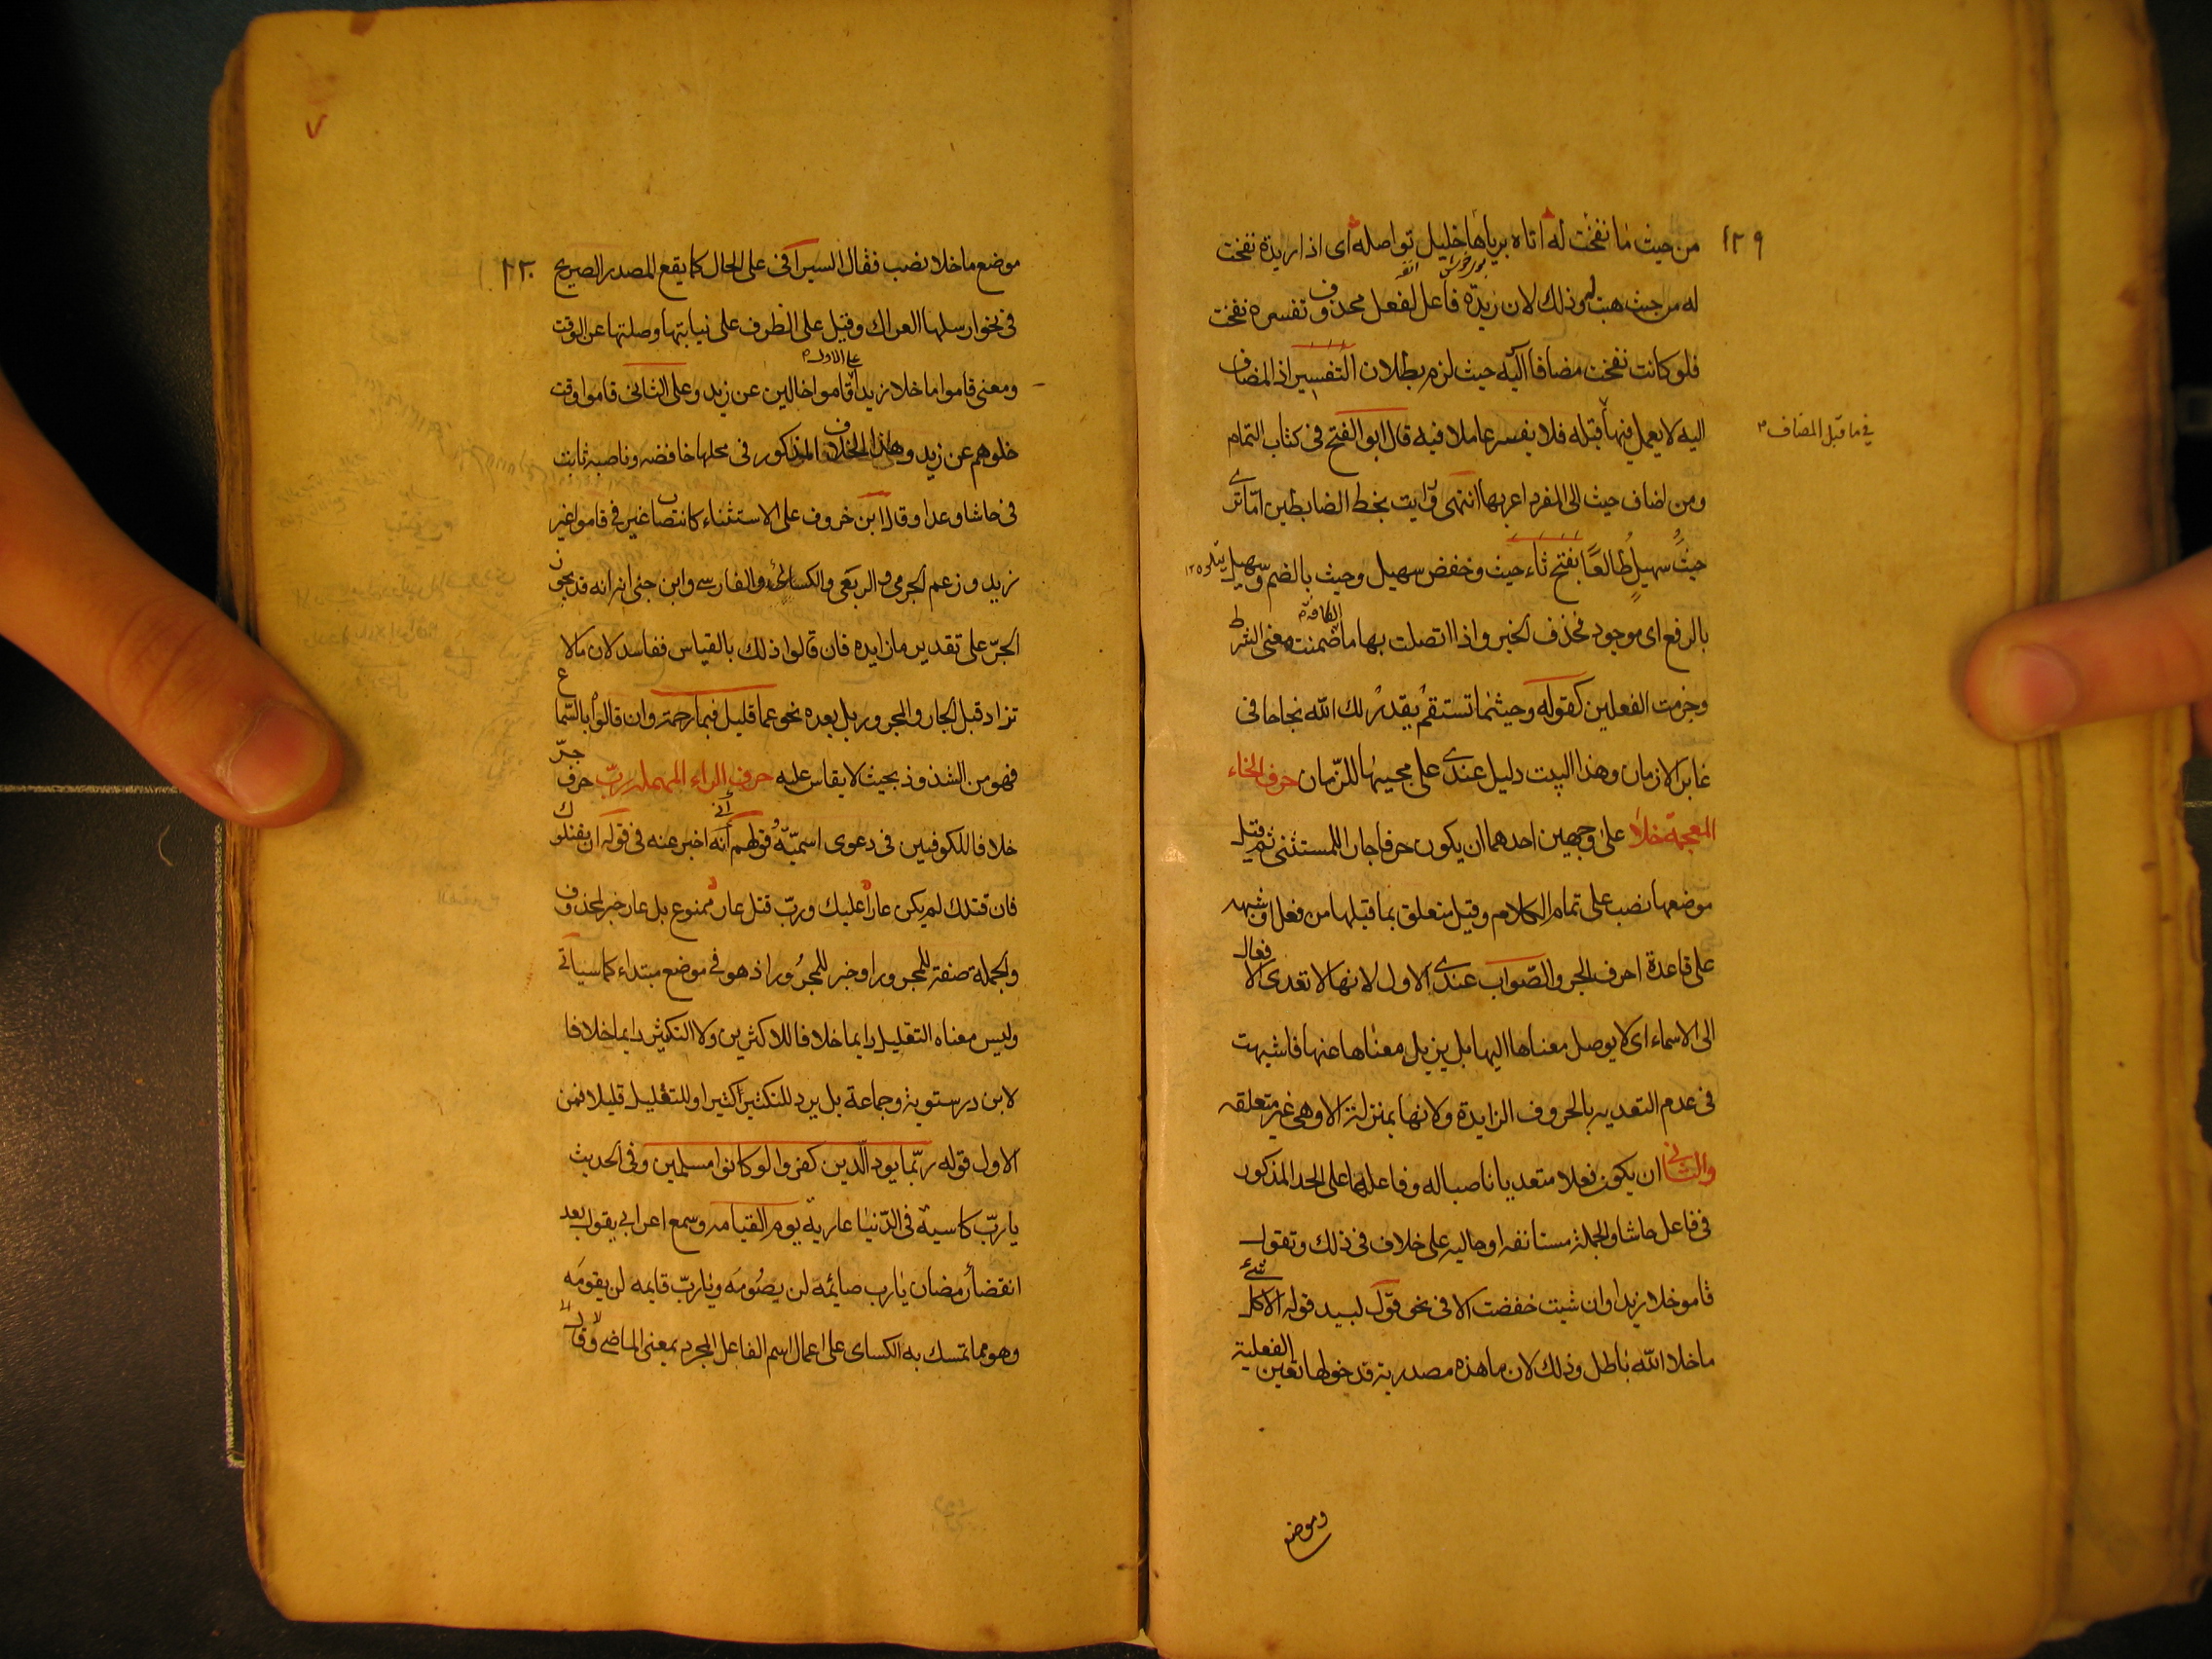 ١٢٩
من حيث ما نفخت له اتاه برياها خليل تواصله اى اذا ريدة نفخت
له من حيث هبت له وذلك لان ريدة فاعل لفعل محذوف تفسره نفخت
فلو كانت نفخت مضافا اليه حيث لزم بطلان التفسير اذ المضاف
اليه لا يعمل فيما قبله فلا يفسر عاملا فيه قال ابو الفتح فى كتاب التمام
فى ما قبل المضاف
ومن اضاف حيث الى المفرد اعربها انتهى ورايت بخط الضابطين اما ترى
حيث سهيل طالعا بفتح ثاء حيث وخفض سهيل وحيث بالضم وسهيل
بالرفع اى موجود فحذف الخبر واذا اتصلت بها ما الكافة ضمنت معنى الشرط
وجزمت الفعلين كقوله وحيثما تستقم يقدر لك الله نجاحا فى
غابر الازمان وهذا البيت دليل عندى على مجيئها للزمان حرف الخاء
المعجمة خلا على وجهين احدهما ان يكون حرفا جارا للمستثنى ثم قيل
موضعها نصب على تمام الكلام وقيل متعلق بما قبلها من فعل او شبهه
على قاعدة احرف الجر والصواب عندى الاول لانها لا تعدى الافعال
الى الاسماء اى لا يوصل معناها اليها بل يزيل معناها عنها فاشبهت
فى عدم التعديه بالحروف الزايدة ولانها بمنزلة الا وهى غير متعلقه
والثانى ان يكون فعلا متعديا ناصبا له وفاعلها على الحد المذكور
فى فاعل حاشا والجملة مستانفه او حاليه على خلاف فى ذلك وتقول
قامو خلا زيدا وان شيت خفضت الا فى نحو قول لبيد قوله الا كل شئ
ما خلا الله باطل وذلك لان ما هذه مصدرية فدخولها تعين الفعلية
وموضع
١٣٠
موضع ما خلا نصب فقال السيرافى على الحال كما يقع المصدر الصريح
فى نحو ارسلها العراك وقيل على الظرف على نيابتها وصلتها عن الوقت
ومعنى قاموا ما خلا زيدا على الاول قاموا خالين عن زيد وعلى الثانى قاموا وقت
خلوهم عن زيد وهذا الخلاف المذكور فى محلها خافضه وناصبه ثابت
فى حاشا وعدا وقال ابن خروف على الاستثناء كانتصاب غير فى قاموا غير
زيد وزعم الجرمى والربعى والكسائى والفارسى وابن جنى انه قد يجوز
الجر على تقدير ما زايده فان قالوا ذلك بالقياس ففاسد لان ما لا
تزاد قبل الجار والمجرور بل بعده نحو عما قليل فبما رحمة وان قالوا بالسماع
فهو من الشذوذ بحيث لا يقاس عليه حرف الراء المهمله رب حرف جر
خلافا للكوفيين فى دعوى اسميته وقولهم انه اخبر عنه فى قوله ان يقتلوك
فان قتلك لم يكن عارا عليك ورب قتل عار ممنوع بل عار خبر لمحذوف
والجملة صفة للمجرور او خبر للمجرور اذ هو فى موضع مبتداء كما سياتى
وليس معناه التقليل دايما خلافا للاكثرين ولا التكثير دايما خلافا
لابن درستوية وجماعة بل يرد للتكثير كثيرا وللتقليل قليلا فمن
الاول قوله ربما يود الذين كفروا لو كانوا مسلمين وفى الحديث
يا رب كاسية فى الدنيا عارية يوم القيامه وسمع اعرابى يقول بعد
انقضا رمضان يا رب صائمه لن يصومه ويا رب قايمه لن يقومه
وهو مما تمسك به الكساى على اعمال اسم الفاعل المجرد بمعنى الماضى وقال